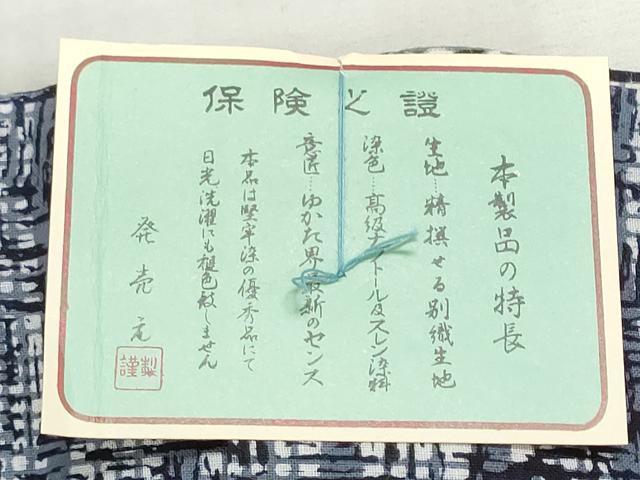 保険之證
本製品の特長
生地…精撰せる別織生地
染色…高級ナフトール及スレン染料
意匠…ゆかた界最新のセンス
本品は堅牢染の優秀品にて
日光洗濯にも褪色致しません
発売元
謹製